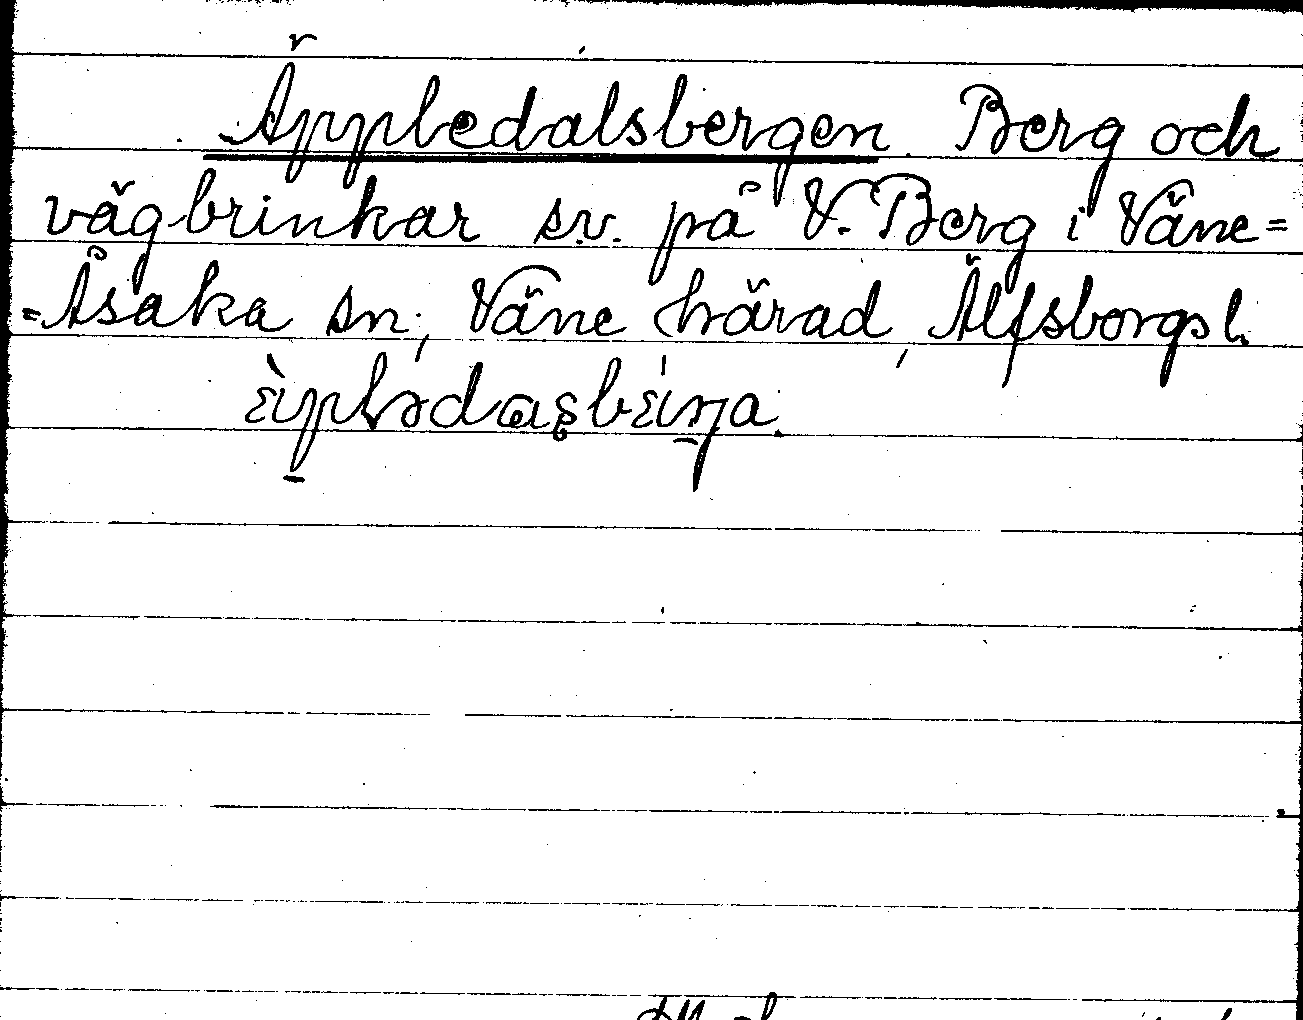 Äppledalsbergen. Berg och
vägbrinkar s.v. på V. Berg i Väne=
=Åsaka sn, Väne härad, Älfsborgs l.